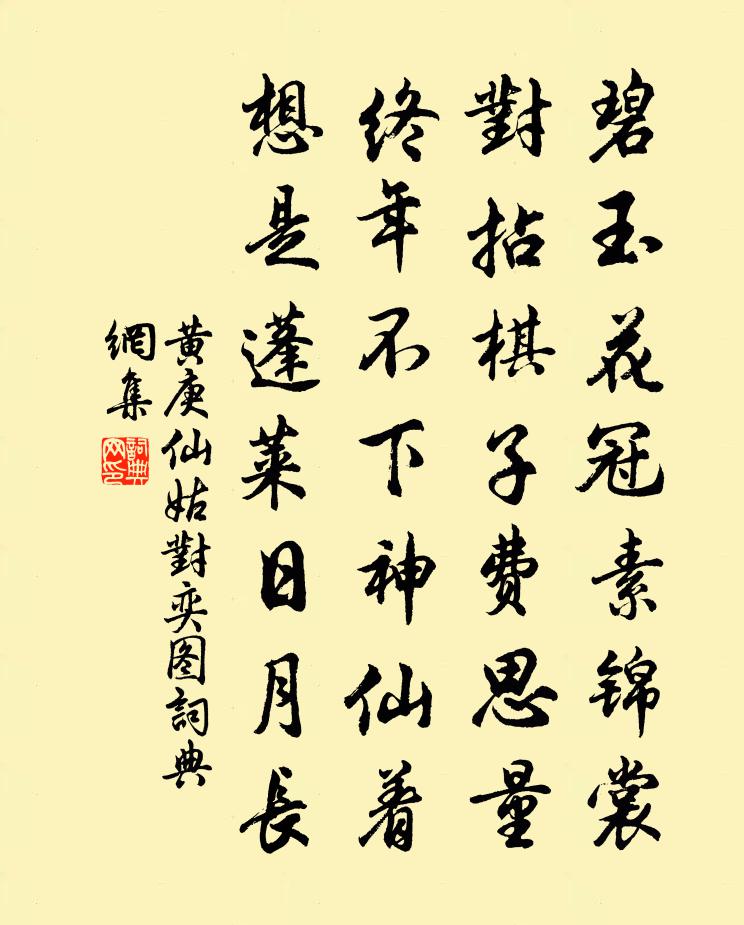 碧玉花冠素锦裳
對拈棋子費思量
終年不下神仙着
想是蓬萊日月長
黄庚仙姑對奕图詞典
網集
詞典
网印